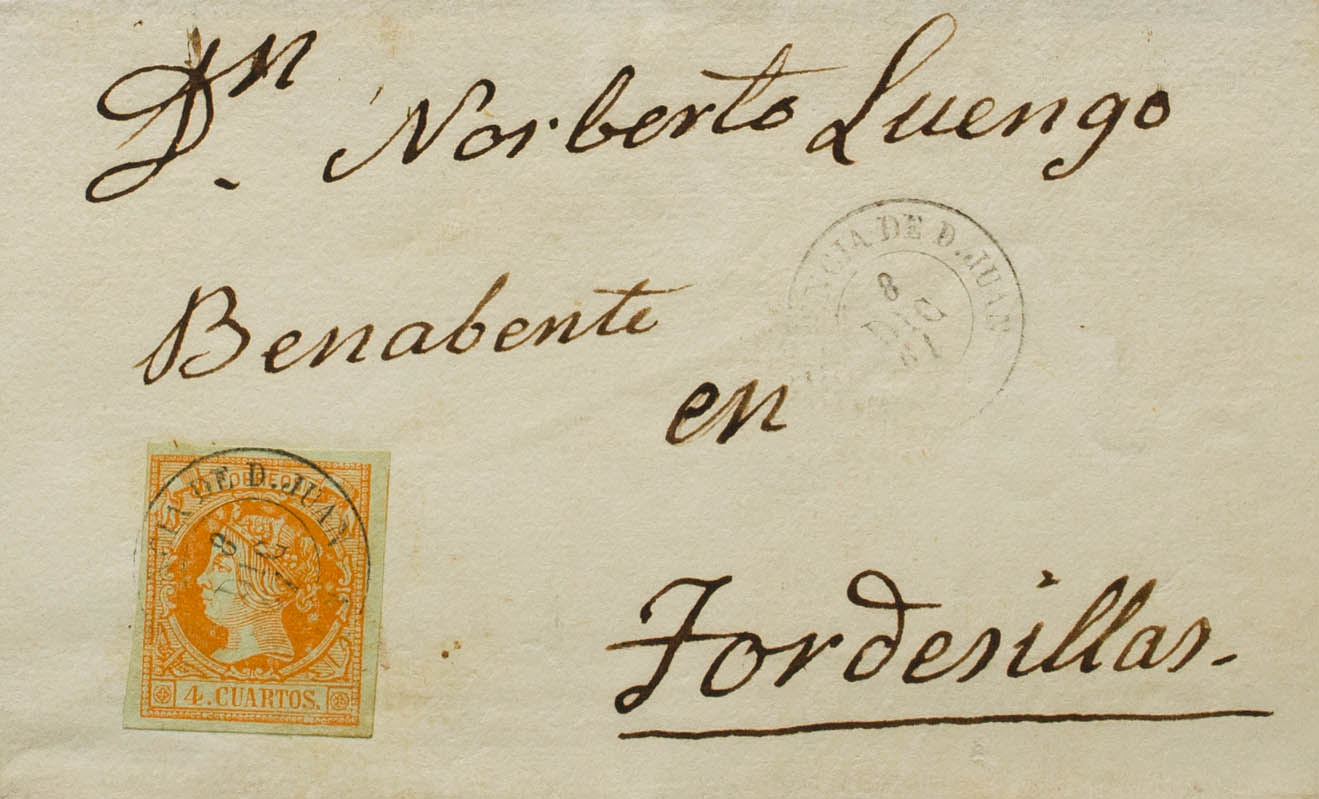 Dn. Norberto Luengo
NCIA DE D. JUAN
8
DIC
61
Benabente
en
DE D. JUAN
8
4. CUARTOS.
Tordesillas.